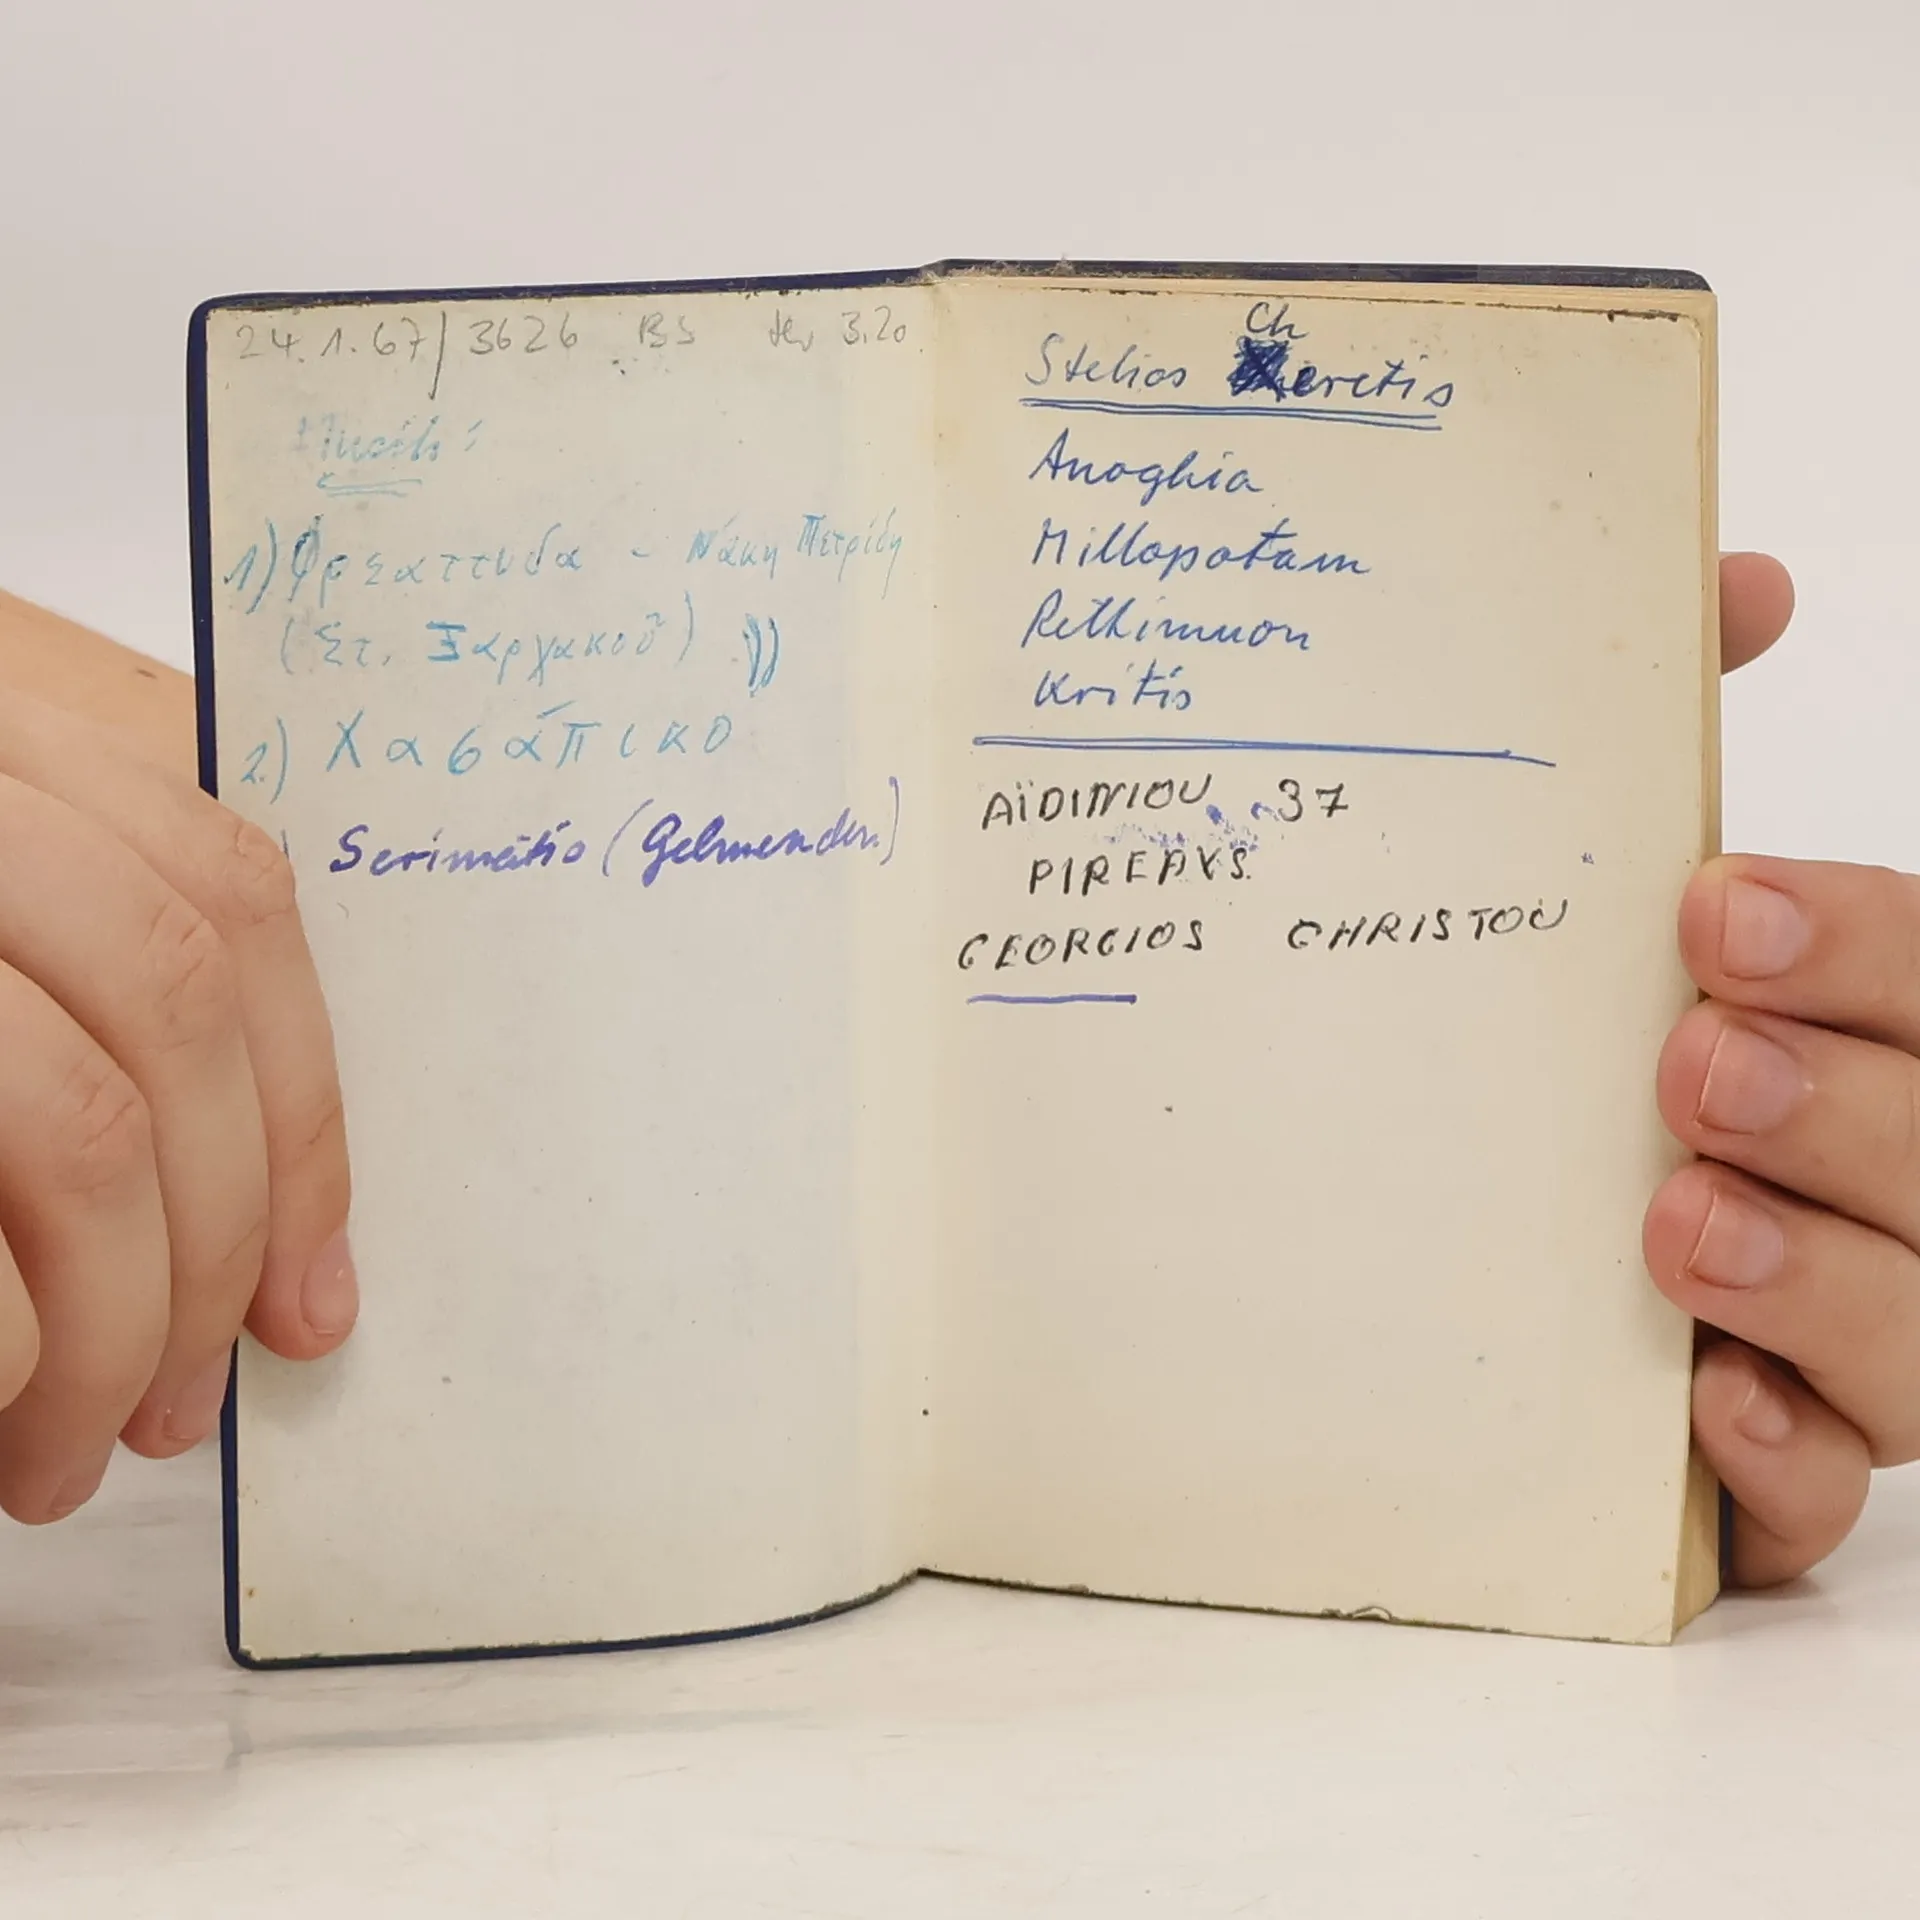 24.1.67/3626 BS 3.20
1) Φρεαττυδα - Νάκη Πετρίδη
(Στ. Ξαρχακοῦ)
2.) Χασάπικο
Serimätio (Gelmenden)
Ch
Stelios eretis
Anoghia
Millopotam
Rethimnon
Kritis
AÏDINIOU 37
PIREAVS.
GEORGIOS CHRISTOU